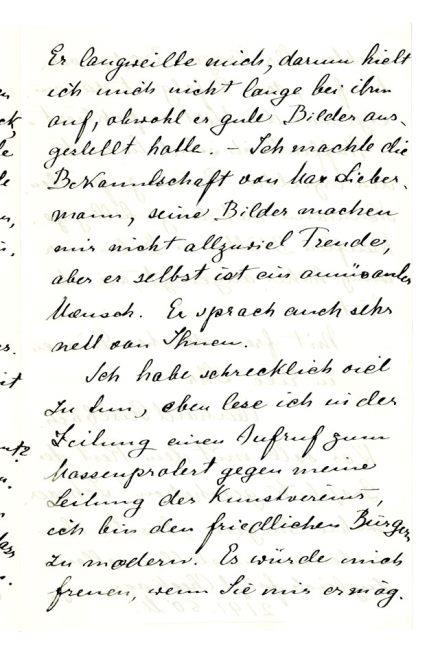 Er langweilte mich, darum hielt
ich mich nicht lange bei ihm
auf, obwohl er gute Bilder aus-
gestellt hatte. – Ich machte die
Bekanntschaft von Max Lieber-
mann, seine Bilder machen
mir nicht allzuviel Freude,
aber er selbst ist ein amüsanter
Mensch. Er sprach auch sehr
nett von Ihnen.
Ich habe schrecklich viel
zu tun, eben lese ich in der
Zeitung einen Aufruf zum
Massenprotest gegen meine
Leitung des Kunstvereins,
ich bin den friedlichen Bürgern
zu modern. Es würde mich
freuen, wenn Sie mir ermög-